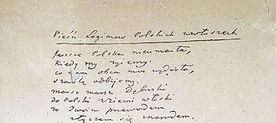 Pieśń Legionów Polskich we Włoszech
Jeszcze Polska nie umarła,
kiedy my żyjemy.
co nam obca moc wydarła,
szablą odbijemy.
Marsz marsz Dąbrowski
do Polski z ziemi włoski
za Twoim przewodem
złączem się z narodem.